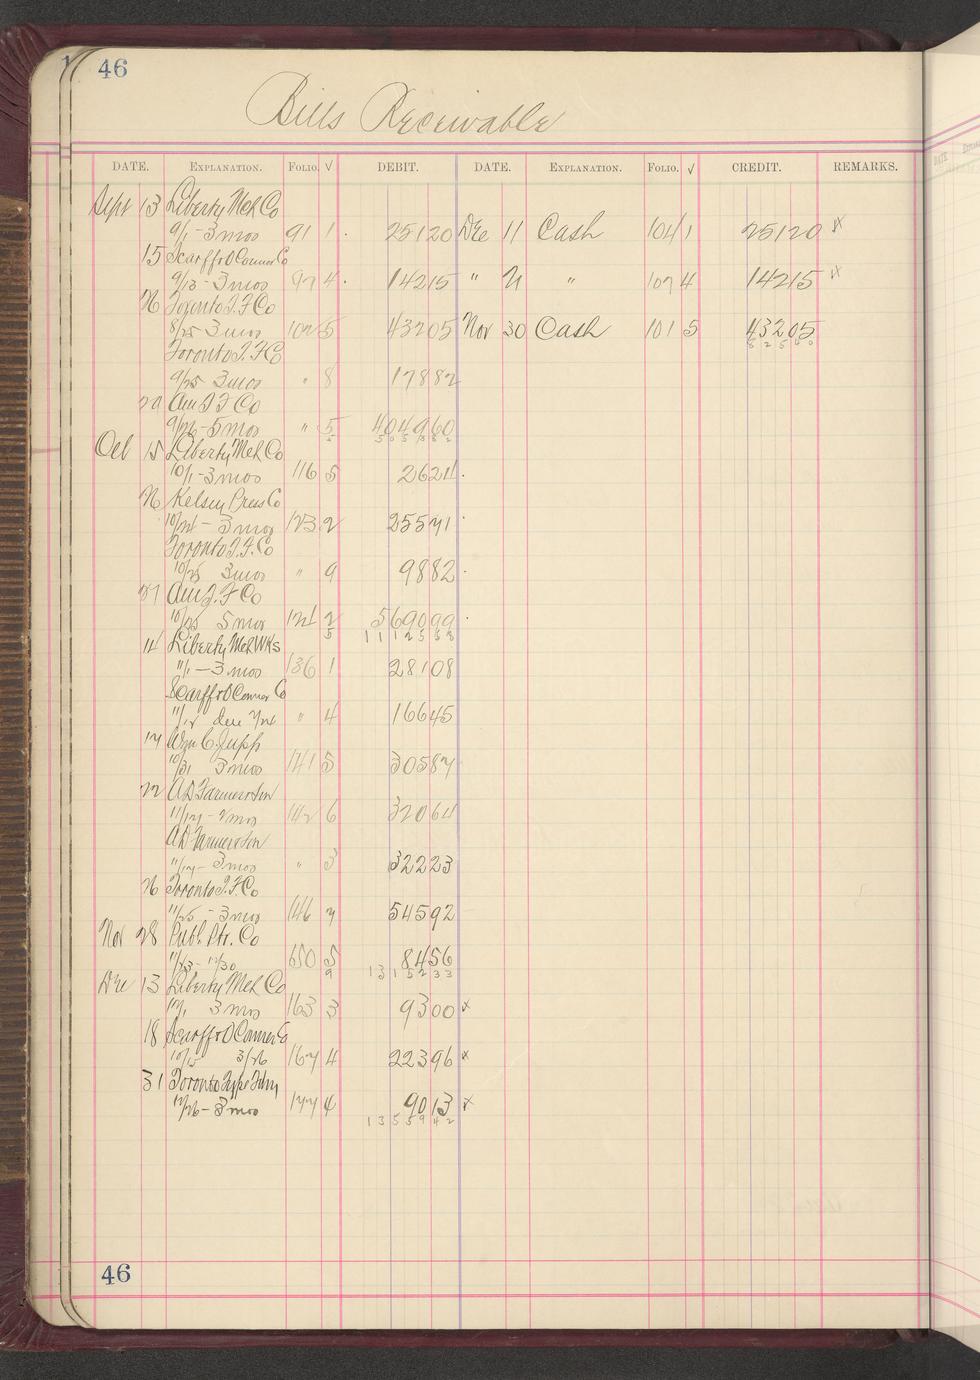 46
Bills Receivable
DATE. EXPLANATION. FOLIO. √ DEBIT. DATE. EXPLANATION. FOLIO. √ CREDIT. REMARKS.
Sept 13 Liberty Mch Co
9/1 - 3 mos 91 1 25120 Dec 11 Cash 104 1 25120 x
15 Scarff & O Connor Co
9/13 - 3 mos 97 4 14215 " " 107 4 14215 x
26 Toronto T. F Co
8/25 3 mos 102 5 43205 Nov 30 Cash 101 5 43205
Toronto T. F Co
9/25 3 mos " 8 17882
Am T F Co
9/26 - 5 mos " 5 404960
Oct 15 Liberty Mch Co
10/1 - 3 mos 116 5 26211
26 Kelsey Press Co
10/24 - 3 mos 123 2 25571
Toronto T. F. Co
10/25 3 mos " 9 9882
27 Am T. F Co
10/25 5 mos 124 2 569099
1112538
14 Liberty Mch Wks
11/1 - 3 mos 136 1 28108
Scarff & O Connor Co
11/12 due " 4 16645
17 Wm C. Jupp
10/31 3 mos 141 5 30587
22 A D Farmer & Son
11/17 - 2 mos 142 6 32064
A D Farmer & Son
11/17 - 3 mos " 3 32223
26 Toronto T. F Co
11/25 - 3 mos 146 7 54592
Nov 28 Publ. Ptr. Co
11/23 - 12/30 150 5 8456
9 1315233
Dec 13 Liberty Mch Co
12/1 3 mos 163 3 9300 x
18 Scarff & O Connor Co
10/15 3/26 167 4 22396 x
31 Toronto Type Fdry
12/26 - 3 mos 177 4 9013 x
1355942
46